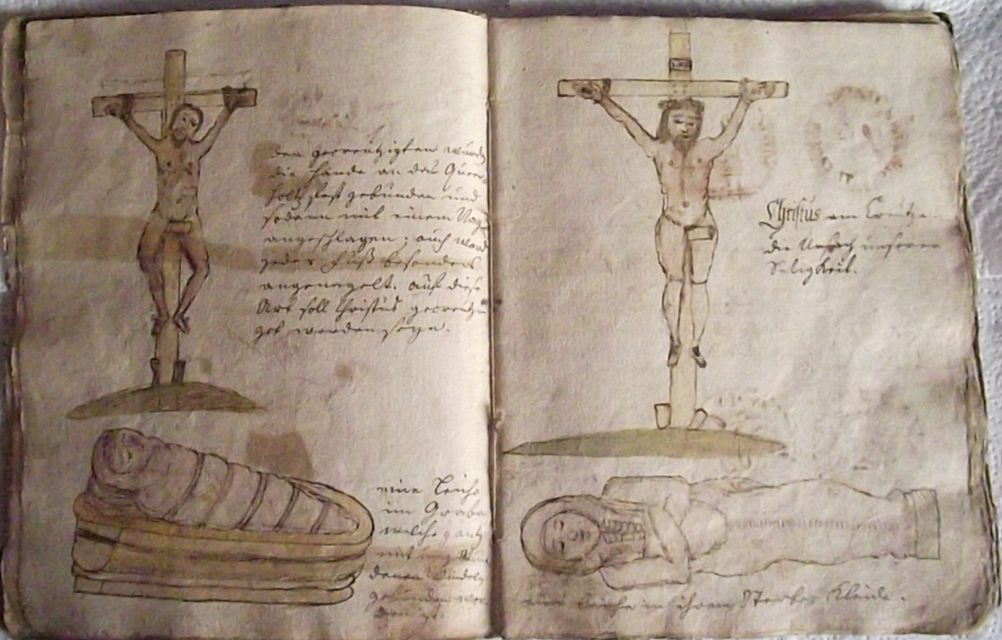 den gecreutzigten wurden
die Hände an das Quer
holtz fest gebunden und
sodann mit einem Nagel
angeschlagen; auch ward
jeder Fuß besonders
angenagelt. auf diese
Art soll Christus gecreutzi
get worden seyn.
eine Leiche
im Grabe
welche gantz
mit
denen Windeln
gebunden wor
den ist.
INRI
Christus am Creutze.
die Ursach unserer
Seligkeit.
eine Leiche in ihrem Sterbe Kleide.